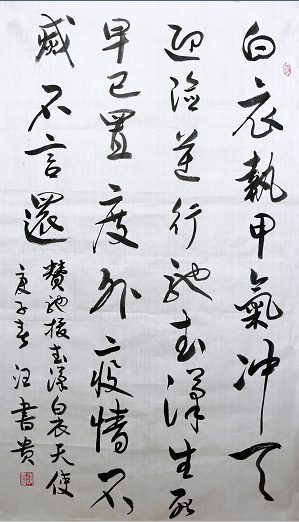 白衣執甲氣冲天
迎險逆行馳武漢生死
早已置度外疫情不
滅不言還
贊馳援武漢白衣天使
庚子春汪書貴